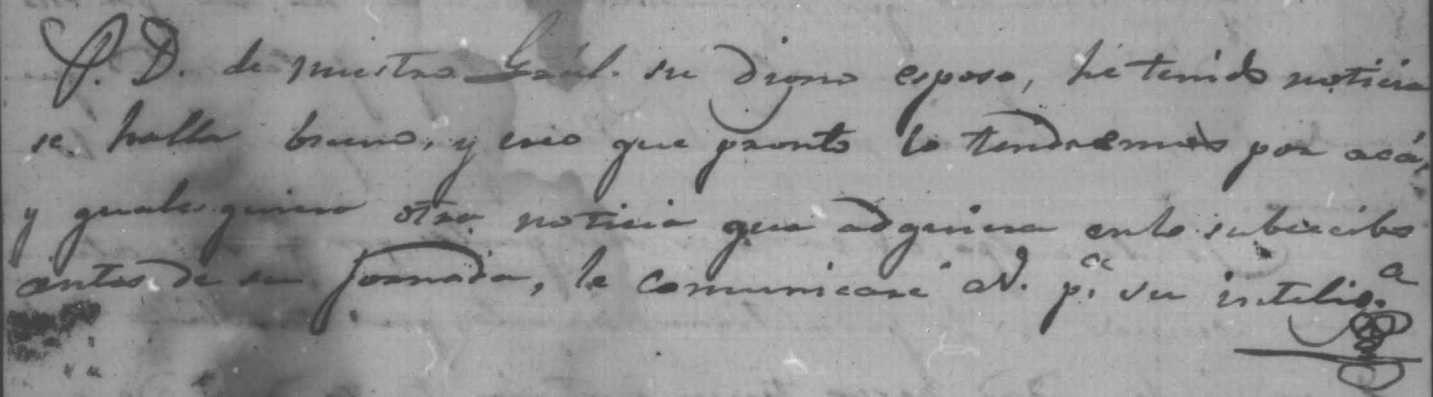 P. D. de nuestro Gral. su digno esposo, he tenido noticia
se halla bueno, y creo que pronto lo tendremos por acá,
y quales quiera otra noticia que adquiera en lo subcecibo
antes de su Jornada, le comunicaré a V. p.ª su intelig.ª